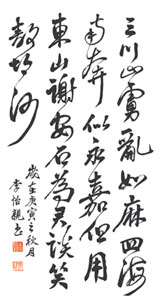 三川北虜亂如麻四海
南奔似永嘉但用
東山謝安石為君談笑
靜胡沙
歲在庚寅之秋月
李怡親書